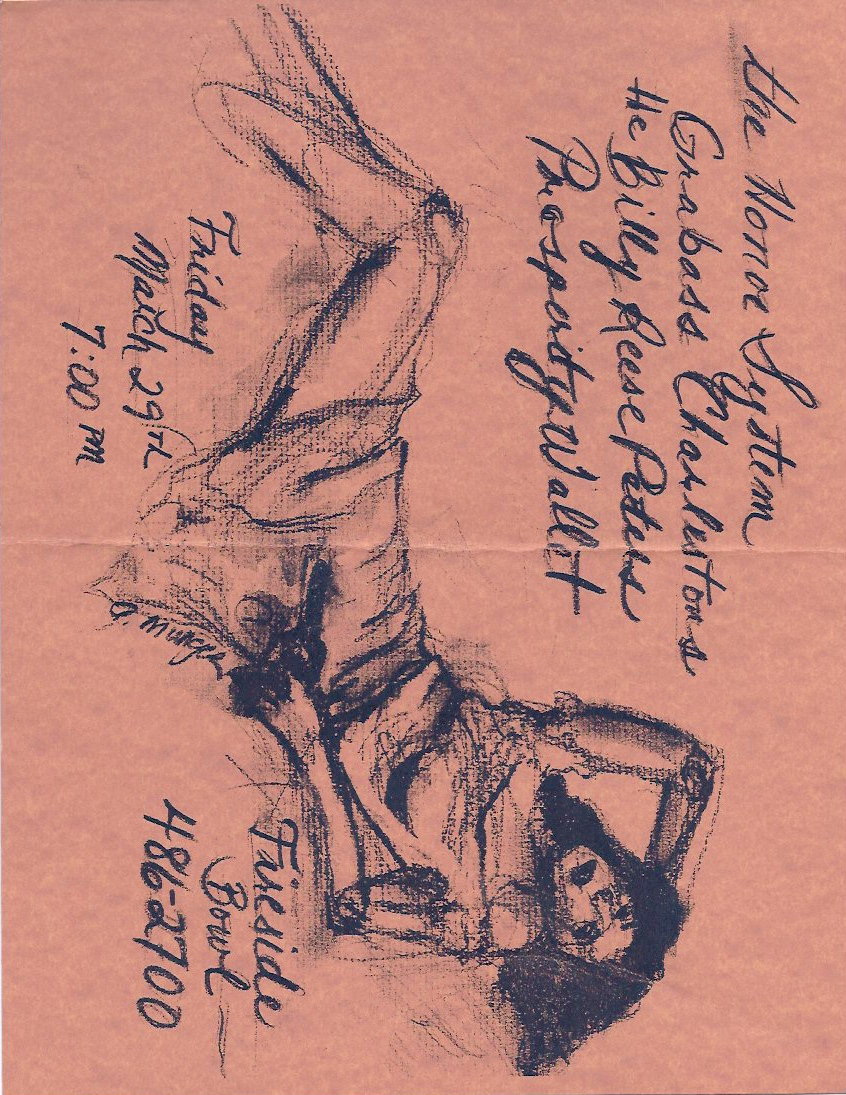 the Honor System
Grabass Charlestons
the Billy Reese Peters
Prosperity Wallet
Friday
March 29th
7:00 PM
Fireside
Bowl
486-2700